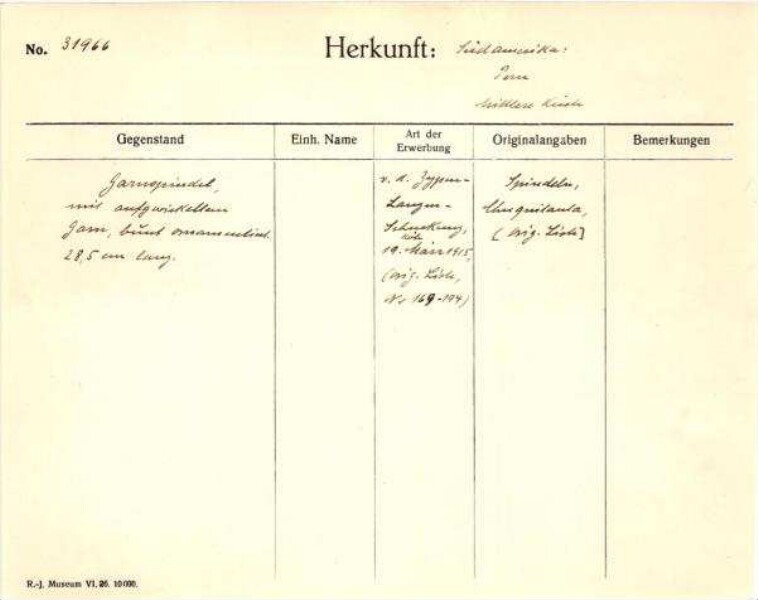 No. 31966
Herkunft: Südamerika:
Peru
Mittlere Küste
Gegenstand
Einh. Name
Art der
Erwerbung
Originalangaben
Bemerkungen
Garnspindel,
mit aufgewickeltem
Garn, bunt ornamentiert.
28,5 cm lang.
v. d. Zypen-
Langen-
Schenkung,
Köln
19. März 1915,
(Orig. Liste,
Nr 169-194)
Spindeln,
Chuquitanta,
[Orig. Liste]
R.-J. Museum VI. 26. 10000.